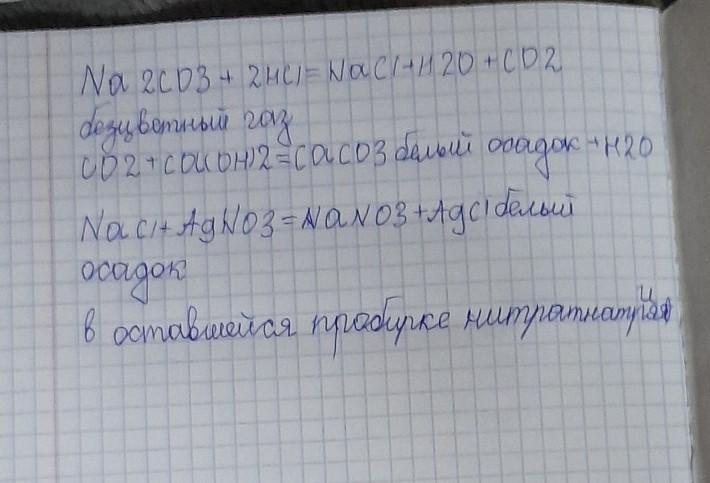 Na 2CO3 + 2HCl = NaCl + H2O + CO2
безцветный газ
CO2 + Ca(OH)2 = CaCO3 белый осадок + H2O
NaCl + AgNO3 = NaNO3 + AgCl белый
осадок
в оставшейся пробирке нитрат натрия